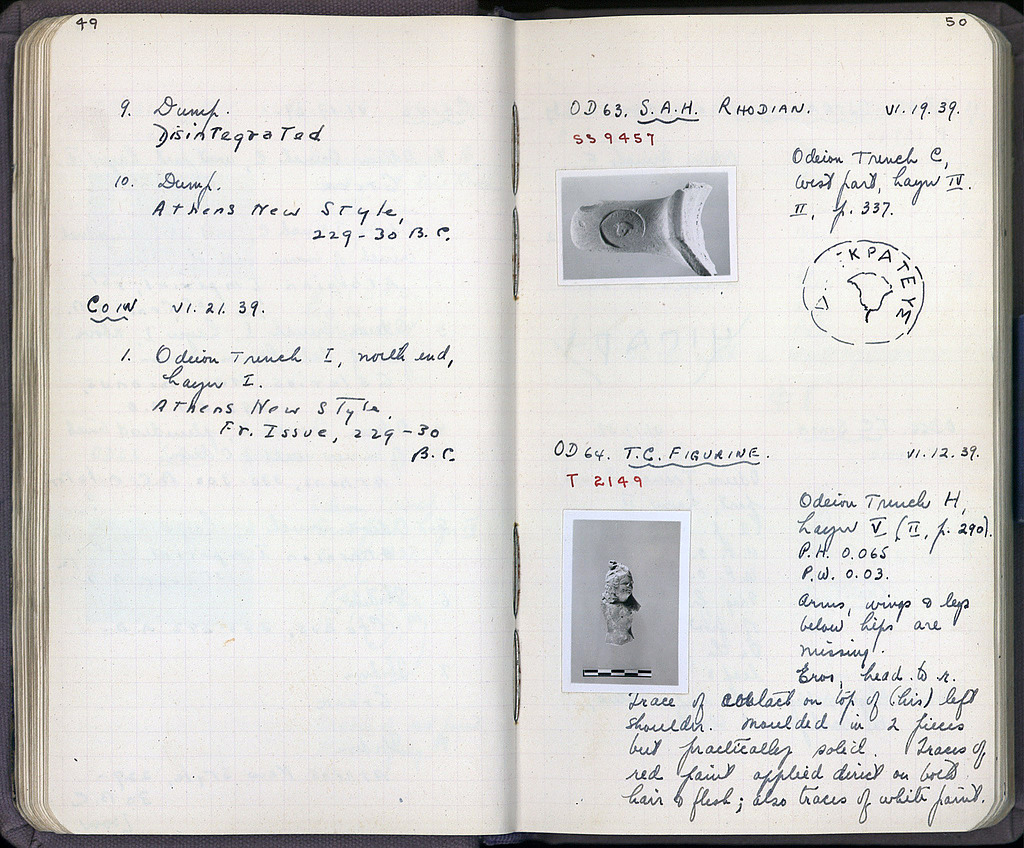 49
9. Dump.
Disintegrated
10. Dump.
Athens New Style,
229-30 B.C.
COIN VI.21.39.
1. Odeion Trench I, north end,
Layer I.
Athens New Style.
Fr. Issue, 229-30
B.C.
50
OD 63. S.A.H. RHODIAN. VI.19.39.
SS 9457
Odeion Trench C,
west part, Layer IV.
II, p. 337.
ΚΡΑΤΕΥΜ
Δ
OD 64. T.C. FIGURINE. VI.12.39.
T 2149
Odeion Trench H,
Layer V (II, p. 290).
P.H. 0.065
P.W. 0.03.
Arms, wings & legs
below hips are
missing.
Eros, head to r.
Trace of contact on top of (his) left
shoulder. Moulded in 2 pieces
but practically solid. Traces of
red paint applied direct on both
hair & flesh; also traces of white paint.